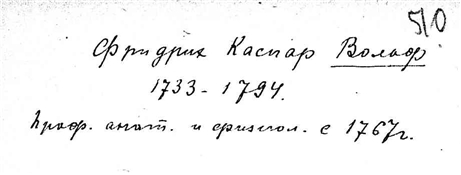 510
Фридрих Каспар Вольф
1733 - 1794.
Проф. анат. и физиол. с 1767г.